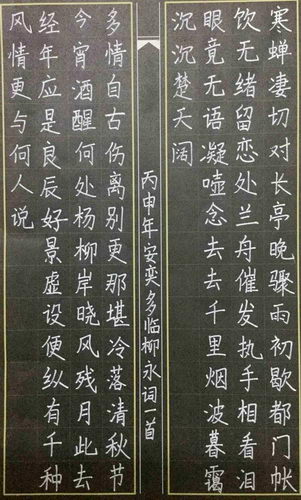 寒蝉凄切对长亭晚骤雨初歇都门帐
饮无绪留恋处兰舟催发执手相看泪
眼竟无语凝噎念去去千里烟波暮霭
沉沉楚天阔
丙申年安奕多临柳永词一首
多情自古伤离别更那堪冷落清秋节
今宵酒醒何处杨柳岸晓风残月此去
经年应是良辰好景虚设便纵有千种
风情更与何人说